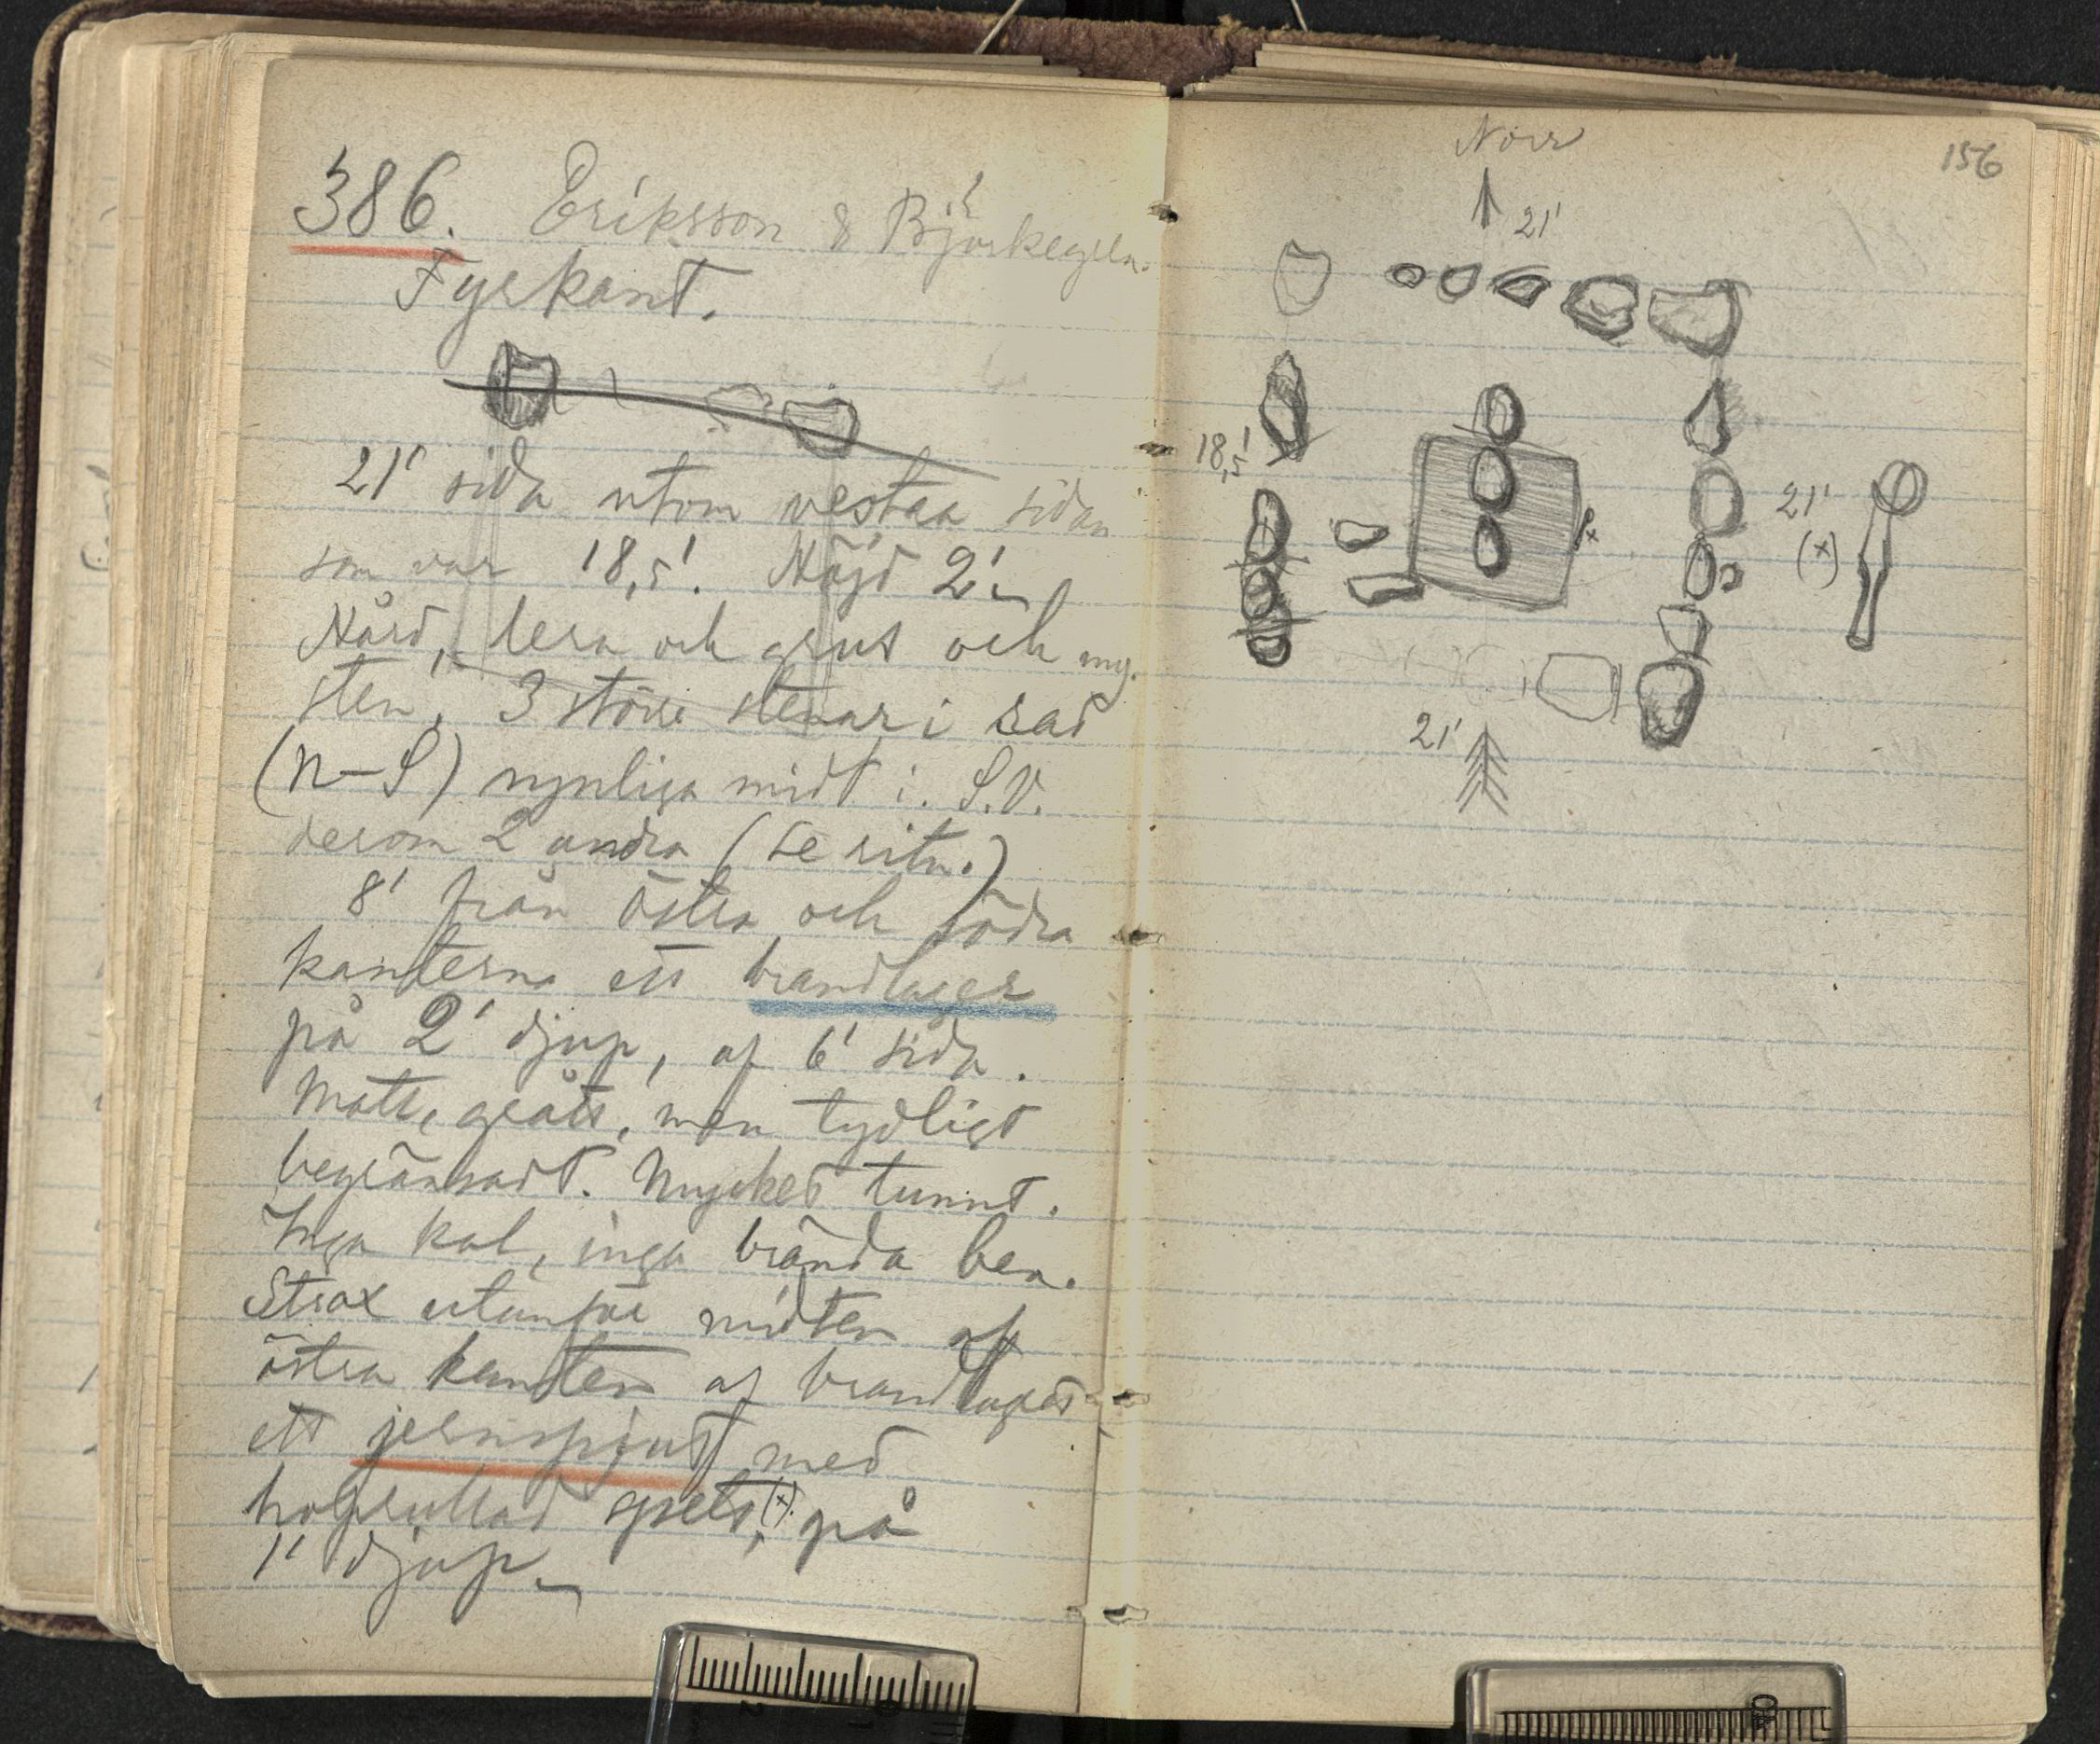 386. Eriksson & Björkegren.
Fyrkant.
21' sida utom vestra sidan
som var 18,5'. Höjd 2'.
Hård, lera och grus och my.
sten, 3 större stenar i rad
(N–S) synliga midt i. S.V.
derom 2 andra (se ritn.)
8' från östra och södra
kanterna ett brandlager
på 2' djup, af 6' sida.
Matt, grått, men tydligt
begränsadt. Mycket tunnt.
Inga kol, inga brända ben.
Strax utanför midten af
östra kanten af brandlagret
ett jernspjut med
holk (x) på
1' djup.
156
Norr
21'
18,5'
21'
(x)
21'